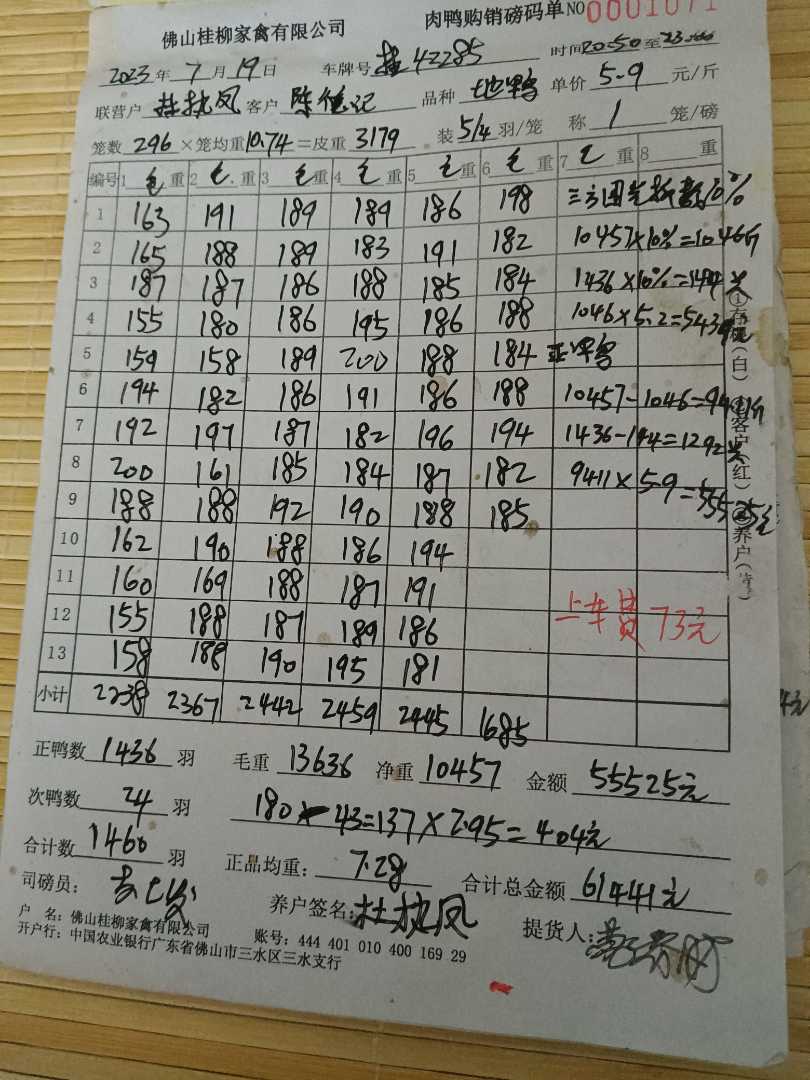 佛山桂柳家禽有限公司 肉鸭购销磅码单 NO 0001071
2023年7月19日 车牌号 桂42285 时间20:50至
联营户 杜执凤 客户 陈健记 品种 地鸭 单价 5.9 元/斤
笼数 296 ×笼均重 10.74 =皮重 3179 装 5/4 羽/笼 称 1 笼/磅
编号 1 毛 重 2 毛 重 3 毛 重 4 毛 重 5 毛 重 6 毛 重 7 毛 重 8 重
1 163 191 189 189 186 198
2 165 188 189 183 191 182 10457×10%=1046斤
3 187 187 186 188 185 184 1436×10%=144只
4 155 180 186 195 186 188 1046×5.2=5439元
5 159 158 189 200 188 184
6 194 182 186 191 186 188 10457-1046=9411斤
7 192 197 187 182 196 194 1436-144=1292只
8 200 161 185 184 187 182 9411×5.9=55525元
9 188 188 192 190 188 185
10 162 190 188 186 194
11 160 169 188 187 191
12 155 188 187 189 186
13 158 188 190 195 181
上车费 73元
小计 2238 2367 2442 2459 2445 1685
①存根(白)②客户(红)③养户(
正鸭数 1436 羽 毛重 13636 净重 10457 金额 55525元
次鸭数 24 羽 180-43=137×2.95=404元
合计数 1460 羽 正品均重: 7.28 合计总金额 61441元
司磅员: 养户签名: 杜执凤 提货人:
户 名: 佛山桂柳家禽有限公司 账号: 444 401 010 400 169 29
开户行: 中国农业银行广东省佛山市三水区三水支行
4元